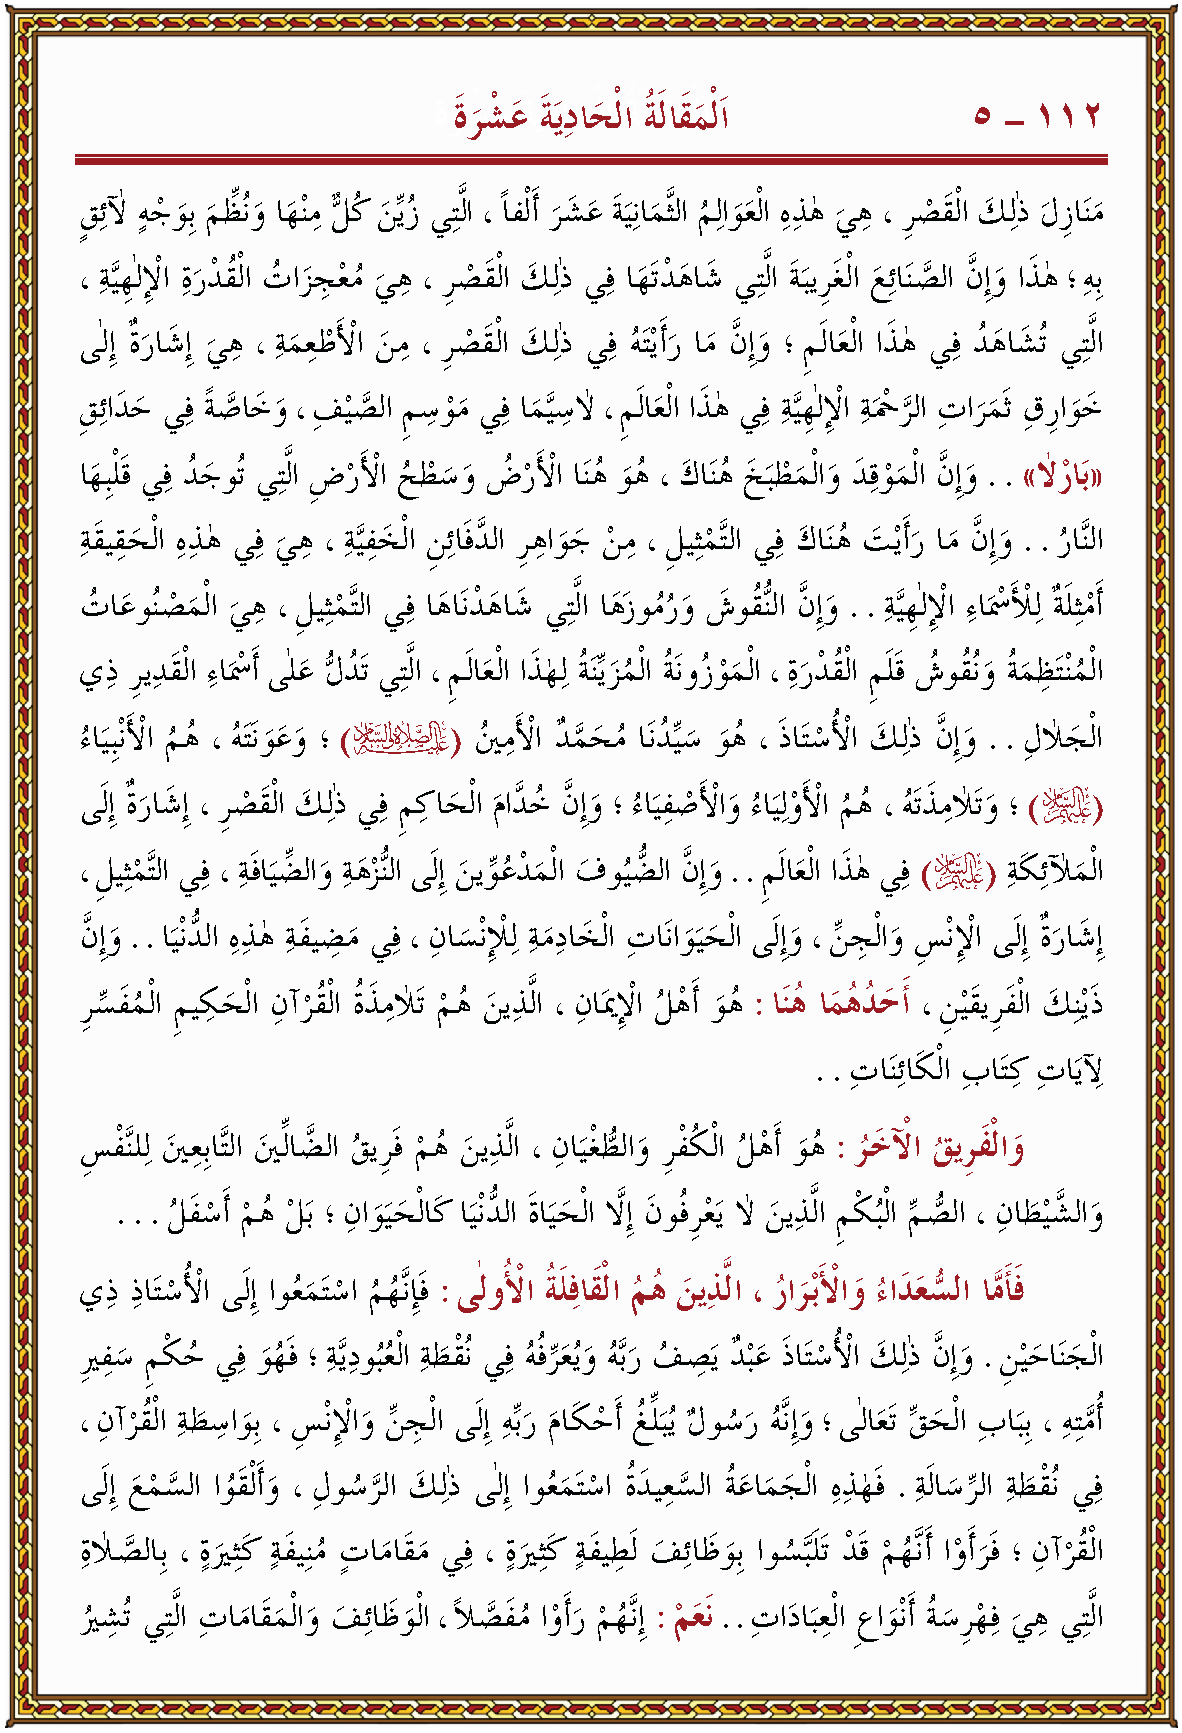 ١١٢ ـ ٥ اَلْمَقَالَةُ الْحَادِيَةَ عَشْرَةَ
مَنَازِلَ ذٰلِكَ الْقَصْرِ ، هِيَ هٰذِهِ الْعَوَالِمُ الثَّمَانِيَةَ عَشَرَ أَلْفاً ، الَّتِي زُيِّنَ كُلٌّ مِنْهَا وَنُظِّمَ بِوَجْهٍ لَآئِقٍ
بِهِ ؛ هٰذَا وَإِنَّ الصَّنَائِعَ الْغَرِيبَةَ الَّتِي شَاهَدْتَهَا فِي ذٰلِكَ الْقَصْرِ ، هِيَ مُعْجِزَاتُ الْقُدْرَةِ الْإِلٰهِيَّةِ ،
الَّتِي تُشَاهَدُ فِي هٰذَا الْعَالَمِ ؛ وَإِنَّ مَا رَأَيْتَهُ فِي ذٰلِكَ الْقَصْرِ ، مِنَ الْأَطْعِمَةِ ، هِيَ إِشَارَةٌ إِلٰى
خَوَارِقِ ثَمَرَاتِ الرَّحْمَةِ الْإِلٰهِيَّةِ فِي هٰذَا الْعَالَمِ ، لَاسِيَّمَا فِي مَوْسِمِ الصَّيْفِ ، وَخَاصَّةً فِي حَدَائِقِ
«بَارْلَا» . . وَإِنَّ الْمَوْقِدَ وَالْمَطْبَخَ هُنَاكَ ، هُوَ هُنَا الْأَرْضُ وَسَطْحُ الْأَرْضِ الَّتِي تُوجَدُ فِي قَلْبِهَا
النَّارُ . . وَإِنَّ مَا رَأَيْتَ هُنَاكَ فِي التَّمْثِيلِ ، مِنْ جَوَاهِرِ الدَّفَائِنِ الْخَفِيَّةِ ، هِيَ فِي هٰذِهِ الْحَقِيقَةِ
أَمْثِلَةٌ لِلْأَسْمَاءِ الْإِلٰهِيَّةِ . . وَإِنَّ النُّقُوشَ وَرُمُوزَهَا الَّتِي شَاهَدْنَاهَا فِي التَّمْثِيلِ ، هِيَ الْمَصْنُوعَاتُ
الْمُنْتَظِمَةُ وَنُقُوشُ قَلَمِ الْقُدْرَةِ ، الْمَوْزُونَةُ الْمُزَيِّنَةُ لِهٰذَا الْعَالَمِ ، الَّتِي تَدُلُّ عَلٰى أَسْمَاءِ الْقَدِيرِ ذِي
الْجَلَالِ . . وَإِنَّ ذٰلِكَ الْأُسْتَاذَ ، هُوَ سَيِّدُنَا مُحَمَّدٌ الْأَمِينُ (عليه الصلاة والسلام) ؛ وَعَوَنَتَهُ ، هُمُ الْأَنْبِيَاءُ
(عليهم السلام) ؛ وَتَلَامِذَتَهُ ، هُمُ الْأَوْلِيَاءُ وَالْأَصْفِيَاءُ ؛ وَإِنَّ خُدَّامَ الْحَاكِمِ فِي ذٰلِكَ الْقَصْرِ ، إِشَارَةٌ إِلَى
الْمَلَآئِكَةِ (عليهم السلام) فِي هٰذَا الْعَالَمِ . . وَإِنَّ الضُّيُوفَ الْمَدْعُوِّينَ إِلَى النُّزْهَةِ وَالضِّيَافَةِ ، فِي التَّمْثِيلِ ،
إِشَارَةٌ إِلَى الْإِنْسِ وَالْجِنِّ ، وَإِلَى الْحَيَوَانَاتِ الْخَادِمَةِ لِلْإِنْسَانِ ، فِي مَضِيفَةِ هٰذِهِ الدُّنْيَا . . وَإِنَّ
ذَيْنِكَ الْفَرِيقَيْنِ ، أَحَدُهُمَا هُنَا : هُوَ أَهْلُ الْإِيمَانِ ، الَّذِينَ هُمْ تَلَامِذَةُ الْقُرْآنِ الْحَكِيمِ الْمُفَسِّرِ
لِآيَاتِ كِتَابِ الْكَائِنَاتِ . .
وَالْفَرِيقُ الْآخَرُ : هُوَ أَهْلُ الْكُفْرِ وَالطُّغْيَانِ ، الَّذِينَ هُمْ فَرِيقُ الضَّالِّينَ التَّابِعِينَ لِلنَّفْسِ
وَالشَّيْطَانِ ، الصُّمِّ الْبُكْمِ الَّذِينَ لَا يَعْرِفُونَ إِلَّا الْحَيَاةَ الدُّنْيَا كَالْحَيَوَانِ ؛ بَلْ هُمْ أَسْفَلُ . . .
فَأَمَّا السُّعَدَاءُ وَالْأَبْرَارُ ، الَّذِينَ هُمُ الْقَافِلَةُ الْأُولٰى : فَإِنَّهُمُ اسْتَمَعُوا إِلَى الْأُسْتَاذِ ذِي
الْجَنَاحَيْنِ . وَإِنَّ ذٰلِكَ الْأُسْتَاذَ عَبْدٌ يَصِفُ رَبَّهُ وَيُعَرِّفُهُ فِي نُقْطَةِ الْعُبُودِيَّةِ ؛ فَهُوَ فِي حُكْمِ سَفِيرِ
أُمَّتِهِ ، بِبَابِ الْحَقِّ تَعَالٰى ؛ وَإِنَّهُ رَسُولٌ يُبَلِّغُ أَحْكَامَ رَبِّهِ إِلَى الْجِنِّ وَالْإِنْسِ ، بِوَاسِطَةِ الْقُرْآنِ ،
فِي نُقْطَةِ الرِّسَالَةِ . فَهٰذِهِ الْجَمَاعَةُ السَّعِيدَةُ اسْتَمَعُوا إِلٰى ذٰلِكَ الرَّسُولِ ، وَأَلْقَوُا السَّمْعَ إِلَى
الْقُرْآنِ ؛ فَرَأَوْا أَنَّهُمْ قَدْ تَلَبَّسُوا بِوَظَائِفَ لَطِيفَةٍ كَثِيرَةٍ ، فِي مَقَامَاتٍ مُنِيفَةٍ كَثِيرَةٍ ، بِالصَّلَاةِ
الَّتِي هِيَ فِهْرِسَةُ أَنْوَاعِ الْعِبَادَاتِ . . نَعَمْ : إِنَّهُمْ رَأَوْا مُفَصَّلاً ، الْوَظَائِفَ وَالْمَقَامَاتِ الَّتِي تُشِيرُ